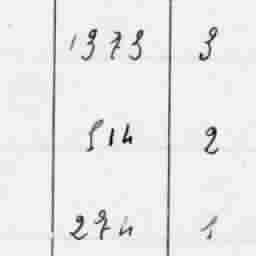 1373 3
514 2
274 1